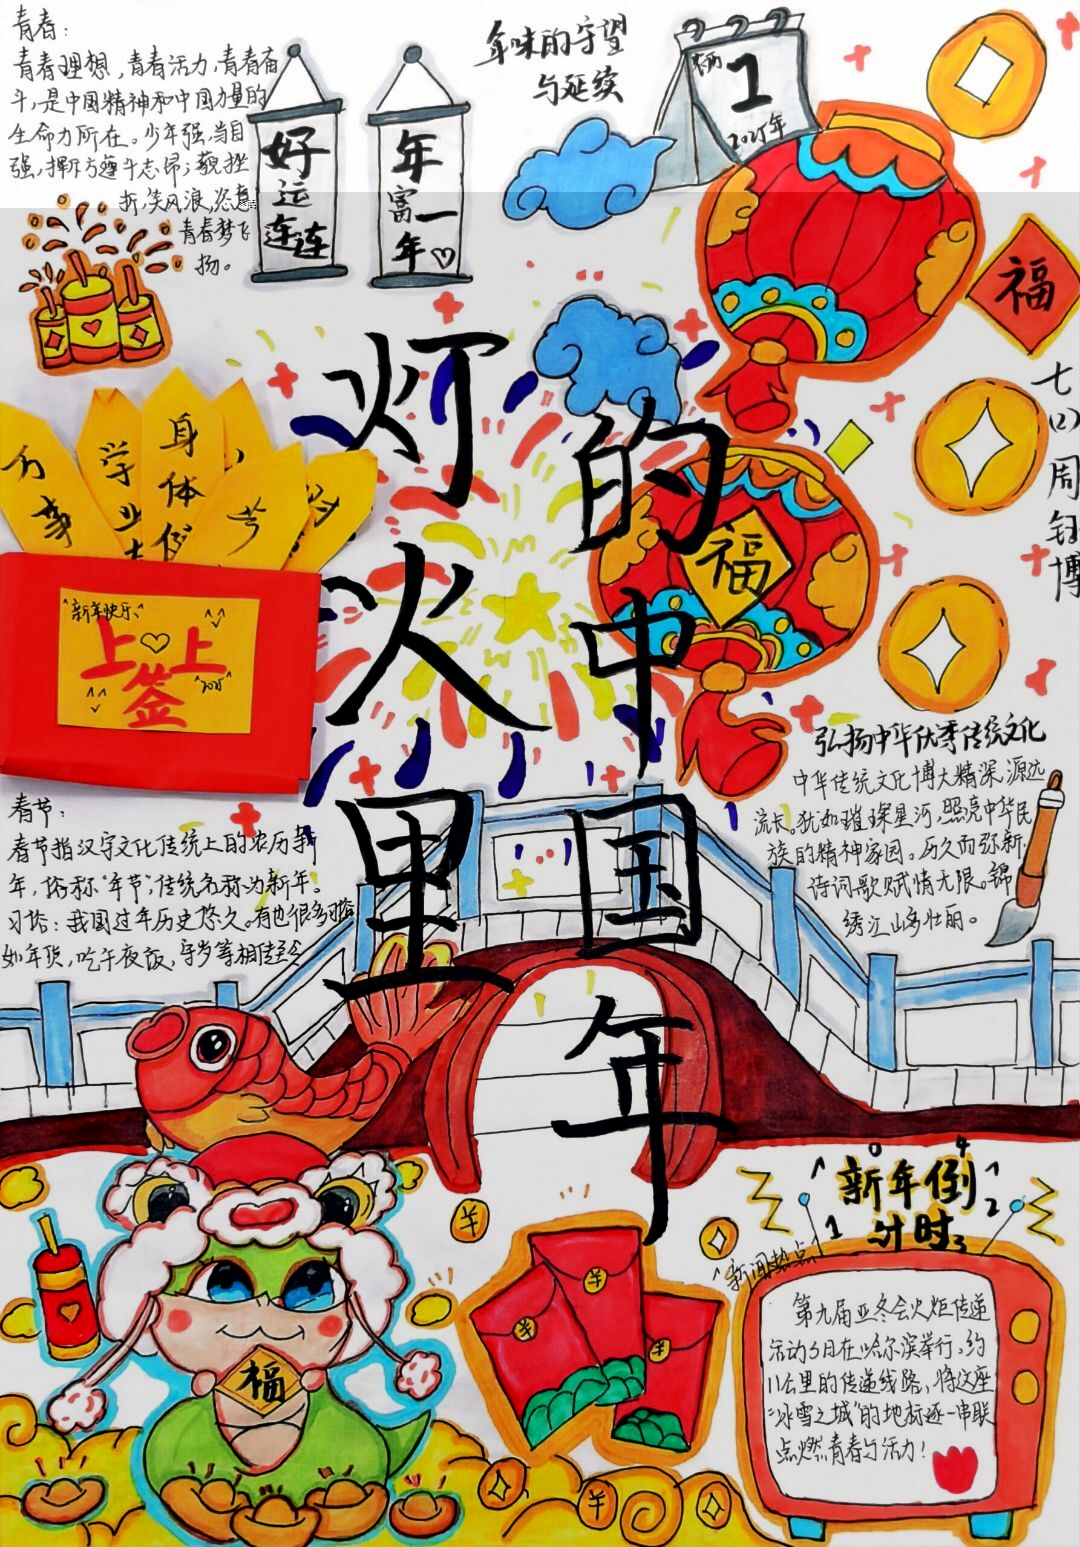 青春：
青春理想，青春活力，青春奋
斗，是中国精神和中国力量的
生命力所在。少年强，当自
强，挥斥方遒斗志昂；藐挫
折，笑风浪，恣意
青春梦飞
扬。
好运连连
年富一年
年味的守望
与延续
1
2025年
福
七(1)周钰博
灯火里
的中国年
福
万事
学业
身体
新年快乐
上上签
2025
春节：
春节指汉字文化传统上的农历新
年，俗称“年节”，传统名称为新年。
习俗：我国过年历史悠久。有也很多习俗
如年货，吃午夜饭，守岁等相传至今
弘扬中华优秀传统文化
中华传统文化博大精深，源远
流长。犹如璀璨星河，照亮中华民
族的精神家园。历久而弥新，
诗词歌赋情无限。锦
绣江山多壮丽。
福
羊
羊
羊
羊
羊
新年倒
计时
0
4
1
2
1
3
新闻热点
第九届亚冬会火炬传递
活动3日在哈尔滨举行，约
11公里的传递线路，将这座
“冰雪之城”的地标逐一串联
点燃青春与活力！